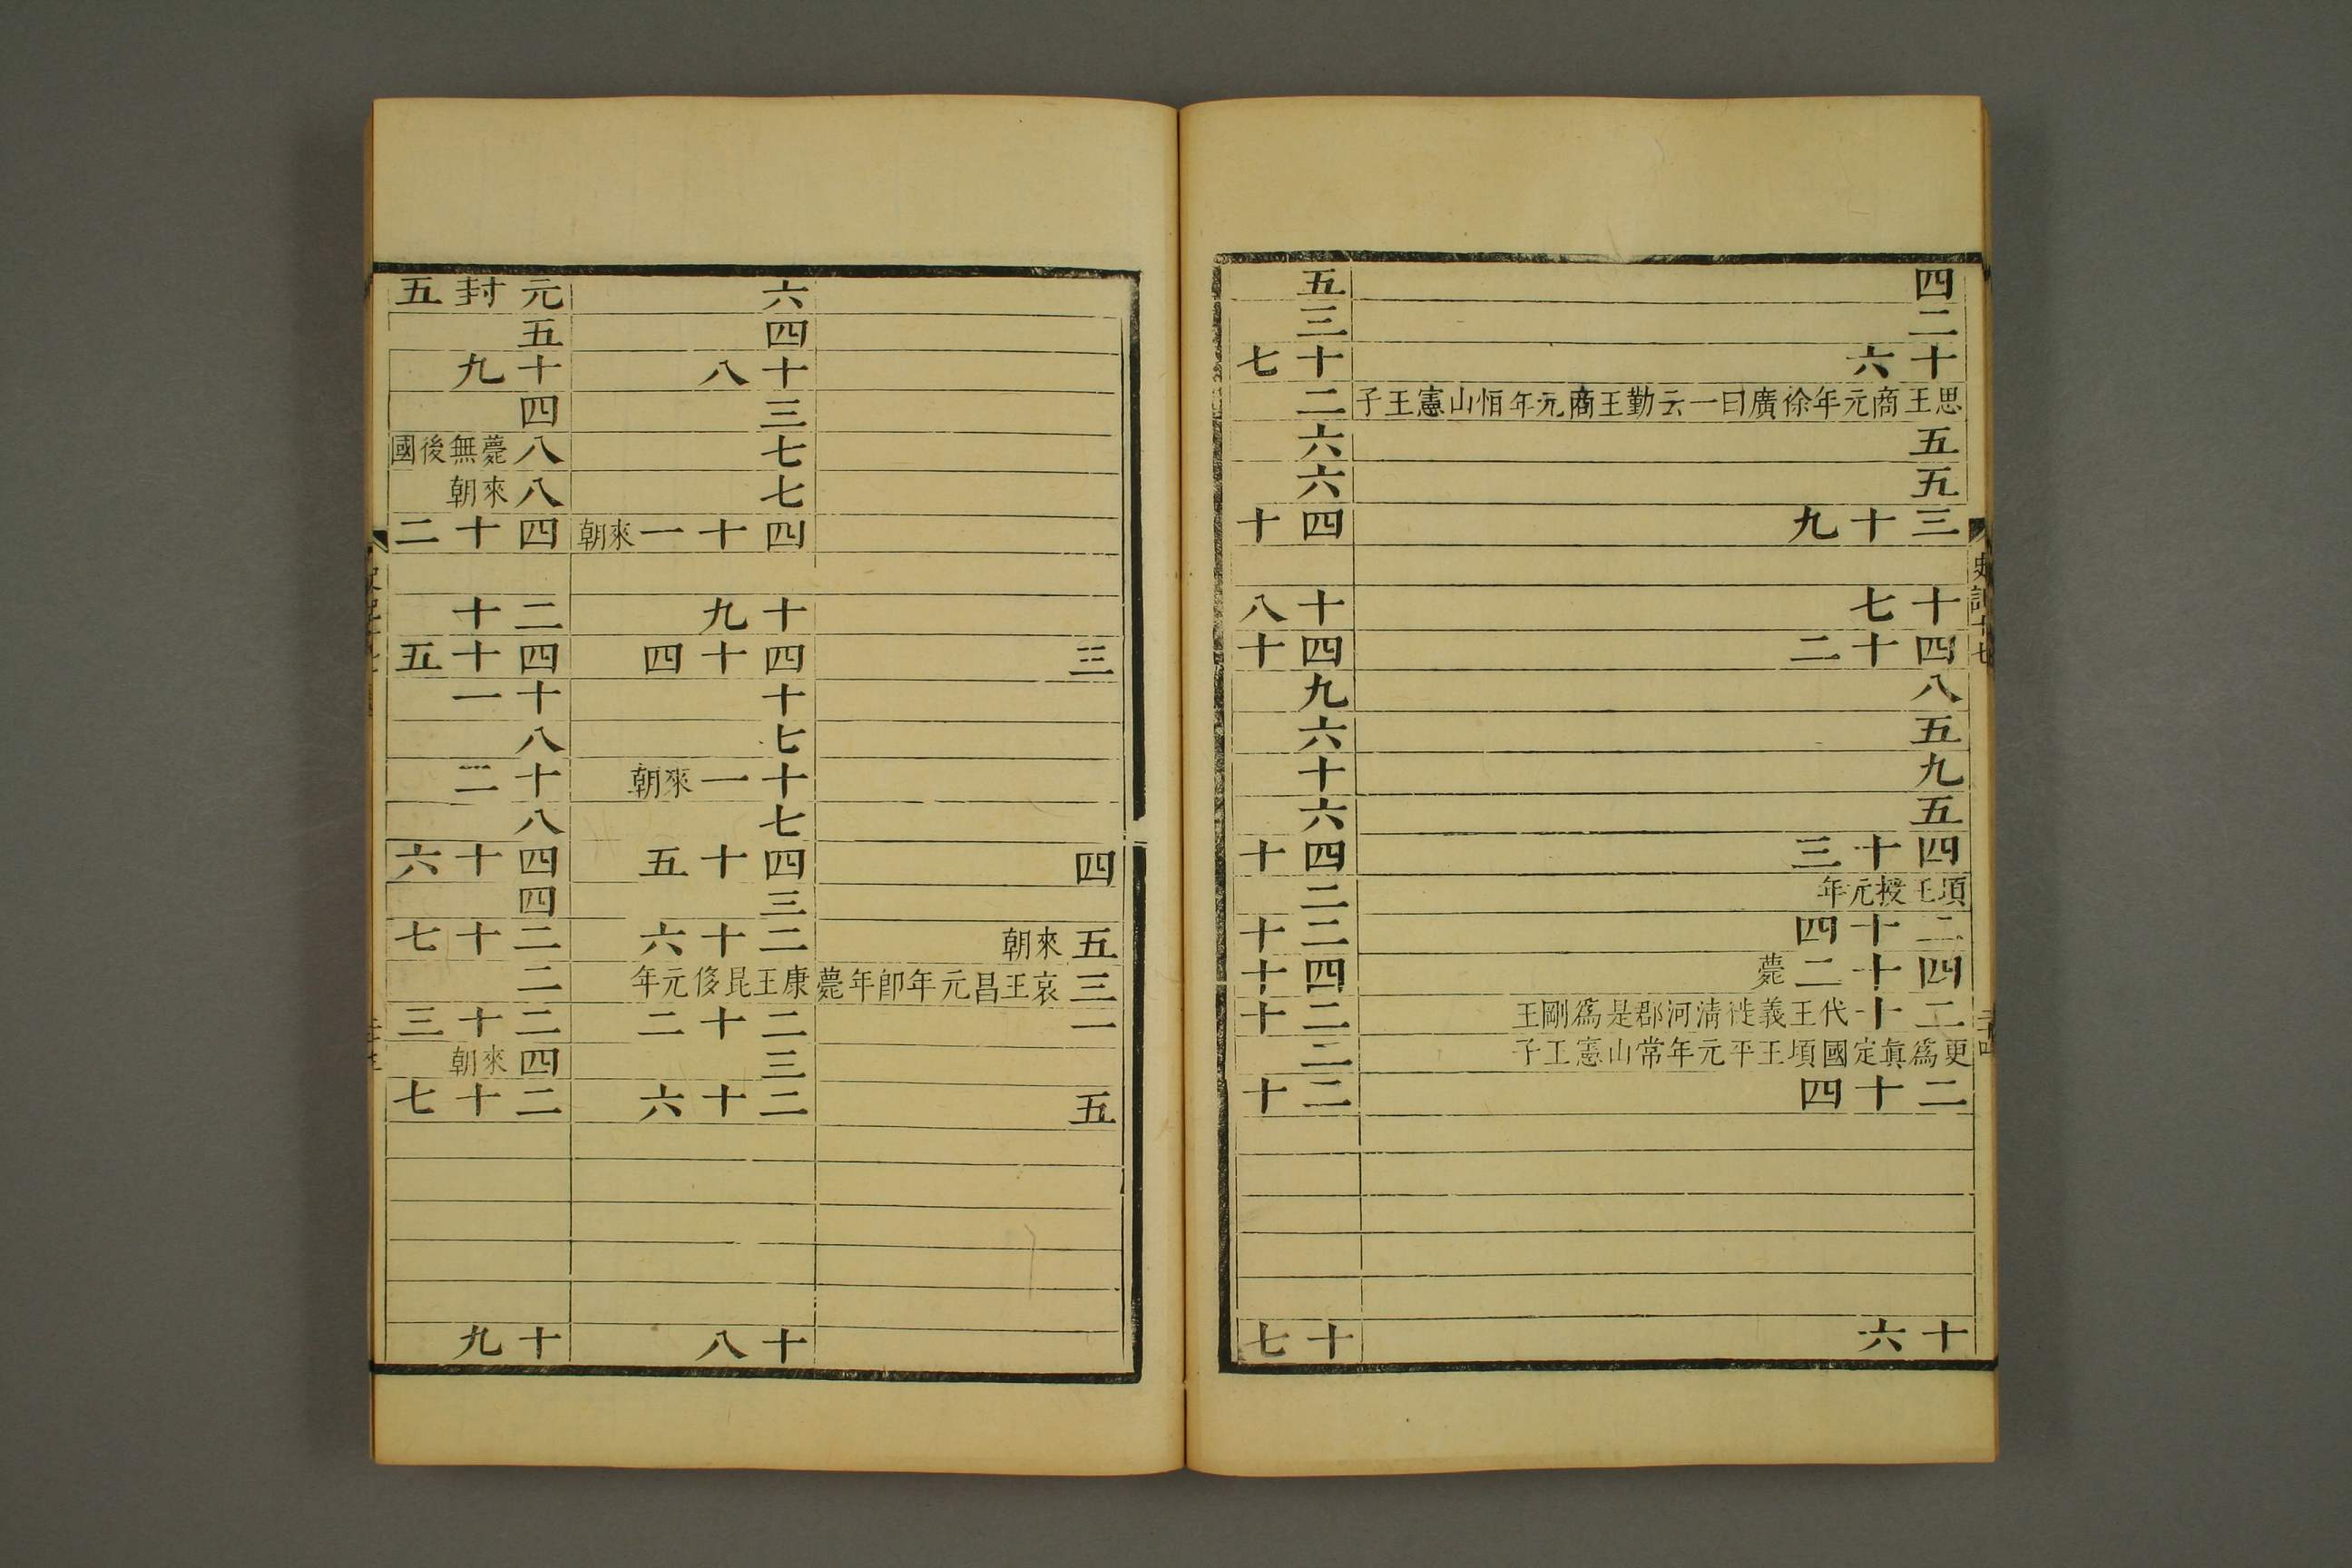 史記十七
四
二
十六
思王商元年徐廣曰一云勤王商元年恒山憲王子
五
五
三十九
十七
四十二
八
五
九
五
四十三
頃王授元年
二十四
四十二薨
二十代王義徙淸河郡是爲剛王
更爲眞定國頃王平元年常山憲王子
二十四
十六
五
三
十七
二
六
六
四十
十八
四十
九
六
十
六
四十
二
二十
四十
二十
二
二十
十七
三
四
五來朝
三哀王昌元年卽年薨康王昆侈元年
一
五
六
四
十八
三
七
七
四十一來朝
十九
四十四
十
七
十一來朝
七
四十五
三
二十六
二十二
三
二十六
十八
元封五
五
十九
四
八薨無後國
八來朝
四十二
二十
四十五
十一
八
十二
八
四十六
四
二十七
二
二十三
四來朝
二十七
十九